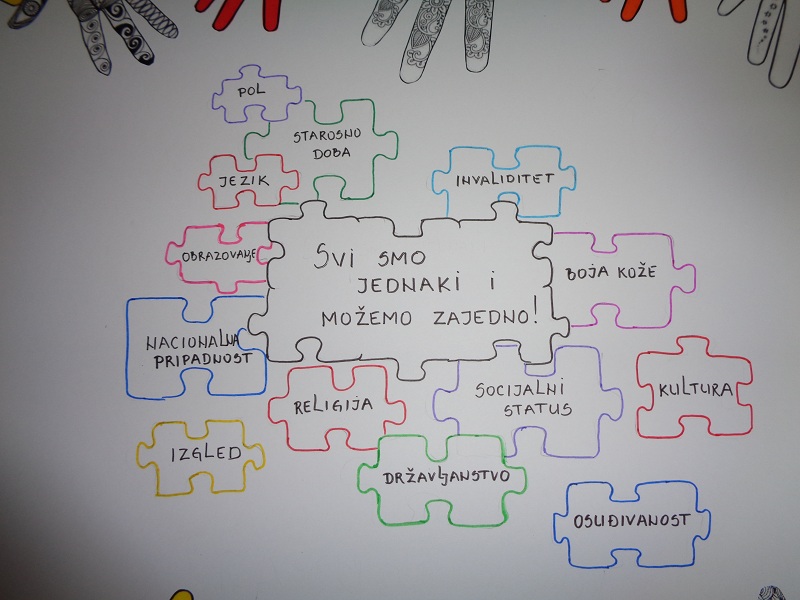 POL
STAROSNO
DOBA
JEZIK
INVALIDITET
OBRAZOVANJE
SVI SMO
JEDNAKI I
MOŽEMO ZAJEDNO!
BOJA KOŽE
NACIONALNA
PRIPADNOST
RELIGIJA
SOCIJALNI
STATUS
KULTURA
IZGLED
DRŽAVLJANSTVO
OSUĐIVANOST